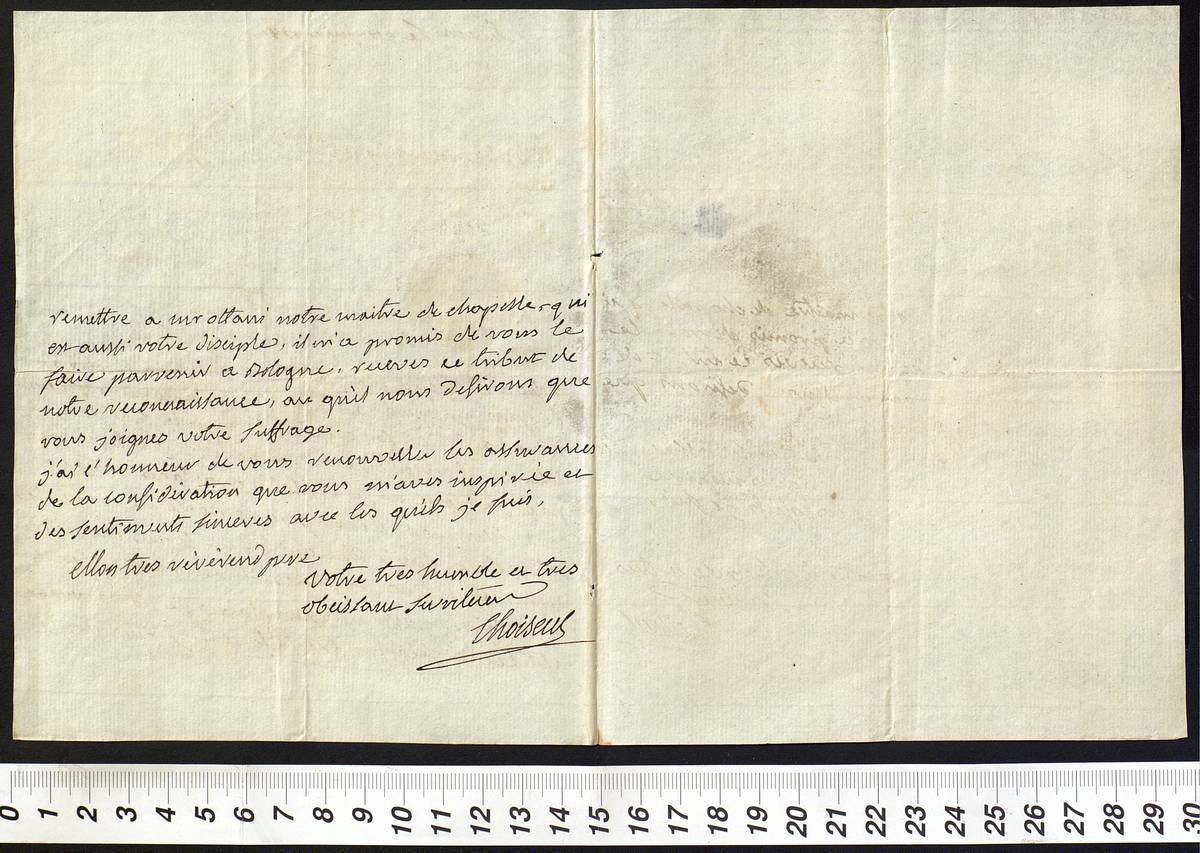 remettre a mr ottani notre maitre de chapelle, qui
est aussi votre disciple, il m'a promis de vous le
faire parvenir a Bologne, reçeves ce tribut de
notre reconnaissance, au quel nous desirons que
vous joignes votre suffrage.
j'ai l'honneur de vous renouveller les assurances
de la consideration que vous m'aves inspirée et
des sentiments sinceres avec les quels je suis,
Mon tres révérend pere
Votre tres humble et tres
obeissant serviteur
Choiseul
0 1 2 3 4 5 6 7 8 9 10 11 12 13 14 15 16 17 18 19 20 21 22 23 24 25 26 27 28 29 30